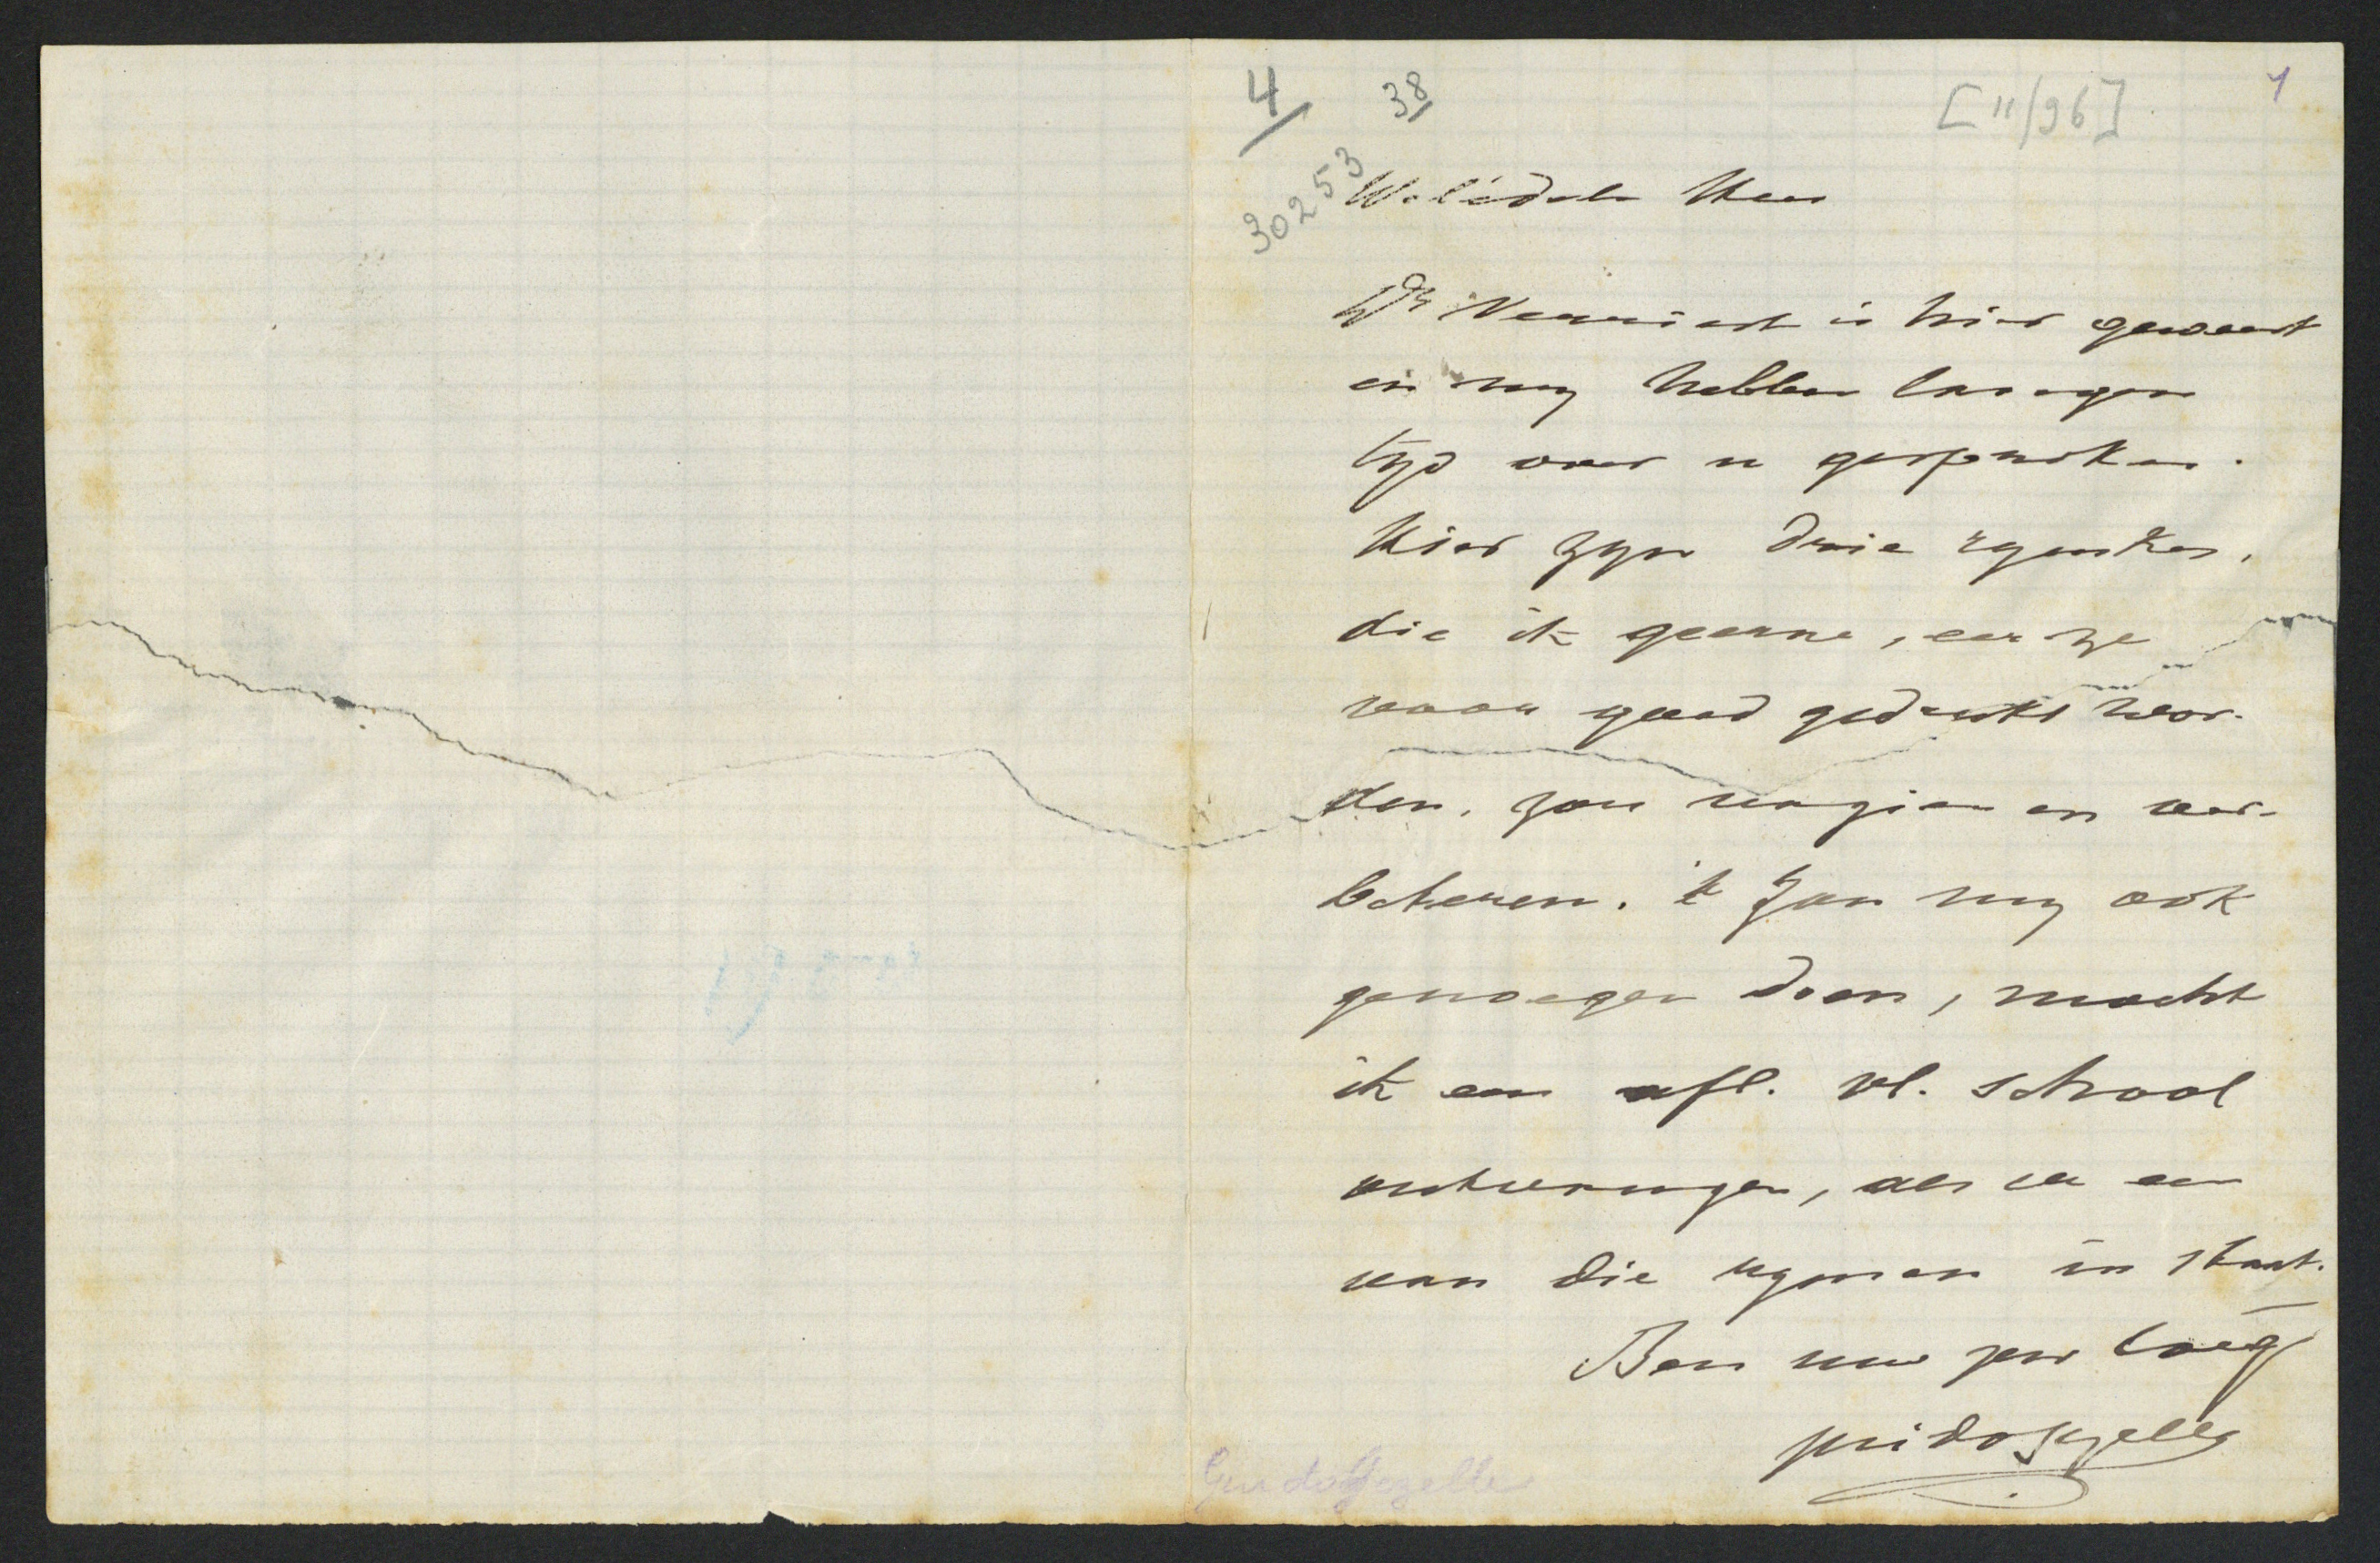 4/ 38/ [11/96] 1
30253
Weledele Heer
Dr Vermiert is hier geweest
en wy hebben langen
tyd over u gesproken.
Hier zyn drie rymkes,
die ik geerne, eer ze
voor goed gedrukt wor-
den, zou nazien en ver-
beteren. 't Zou my ook
genoegen doen, mocht
ik een afl. vl. school
ontvangen, als er een
van die rymen in staat.
Ben uw zeer toeg
Guido Gezelle
Guido Gezelle